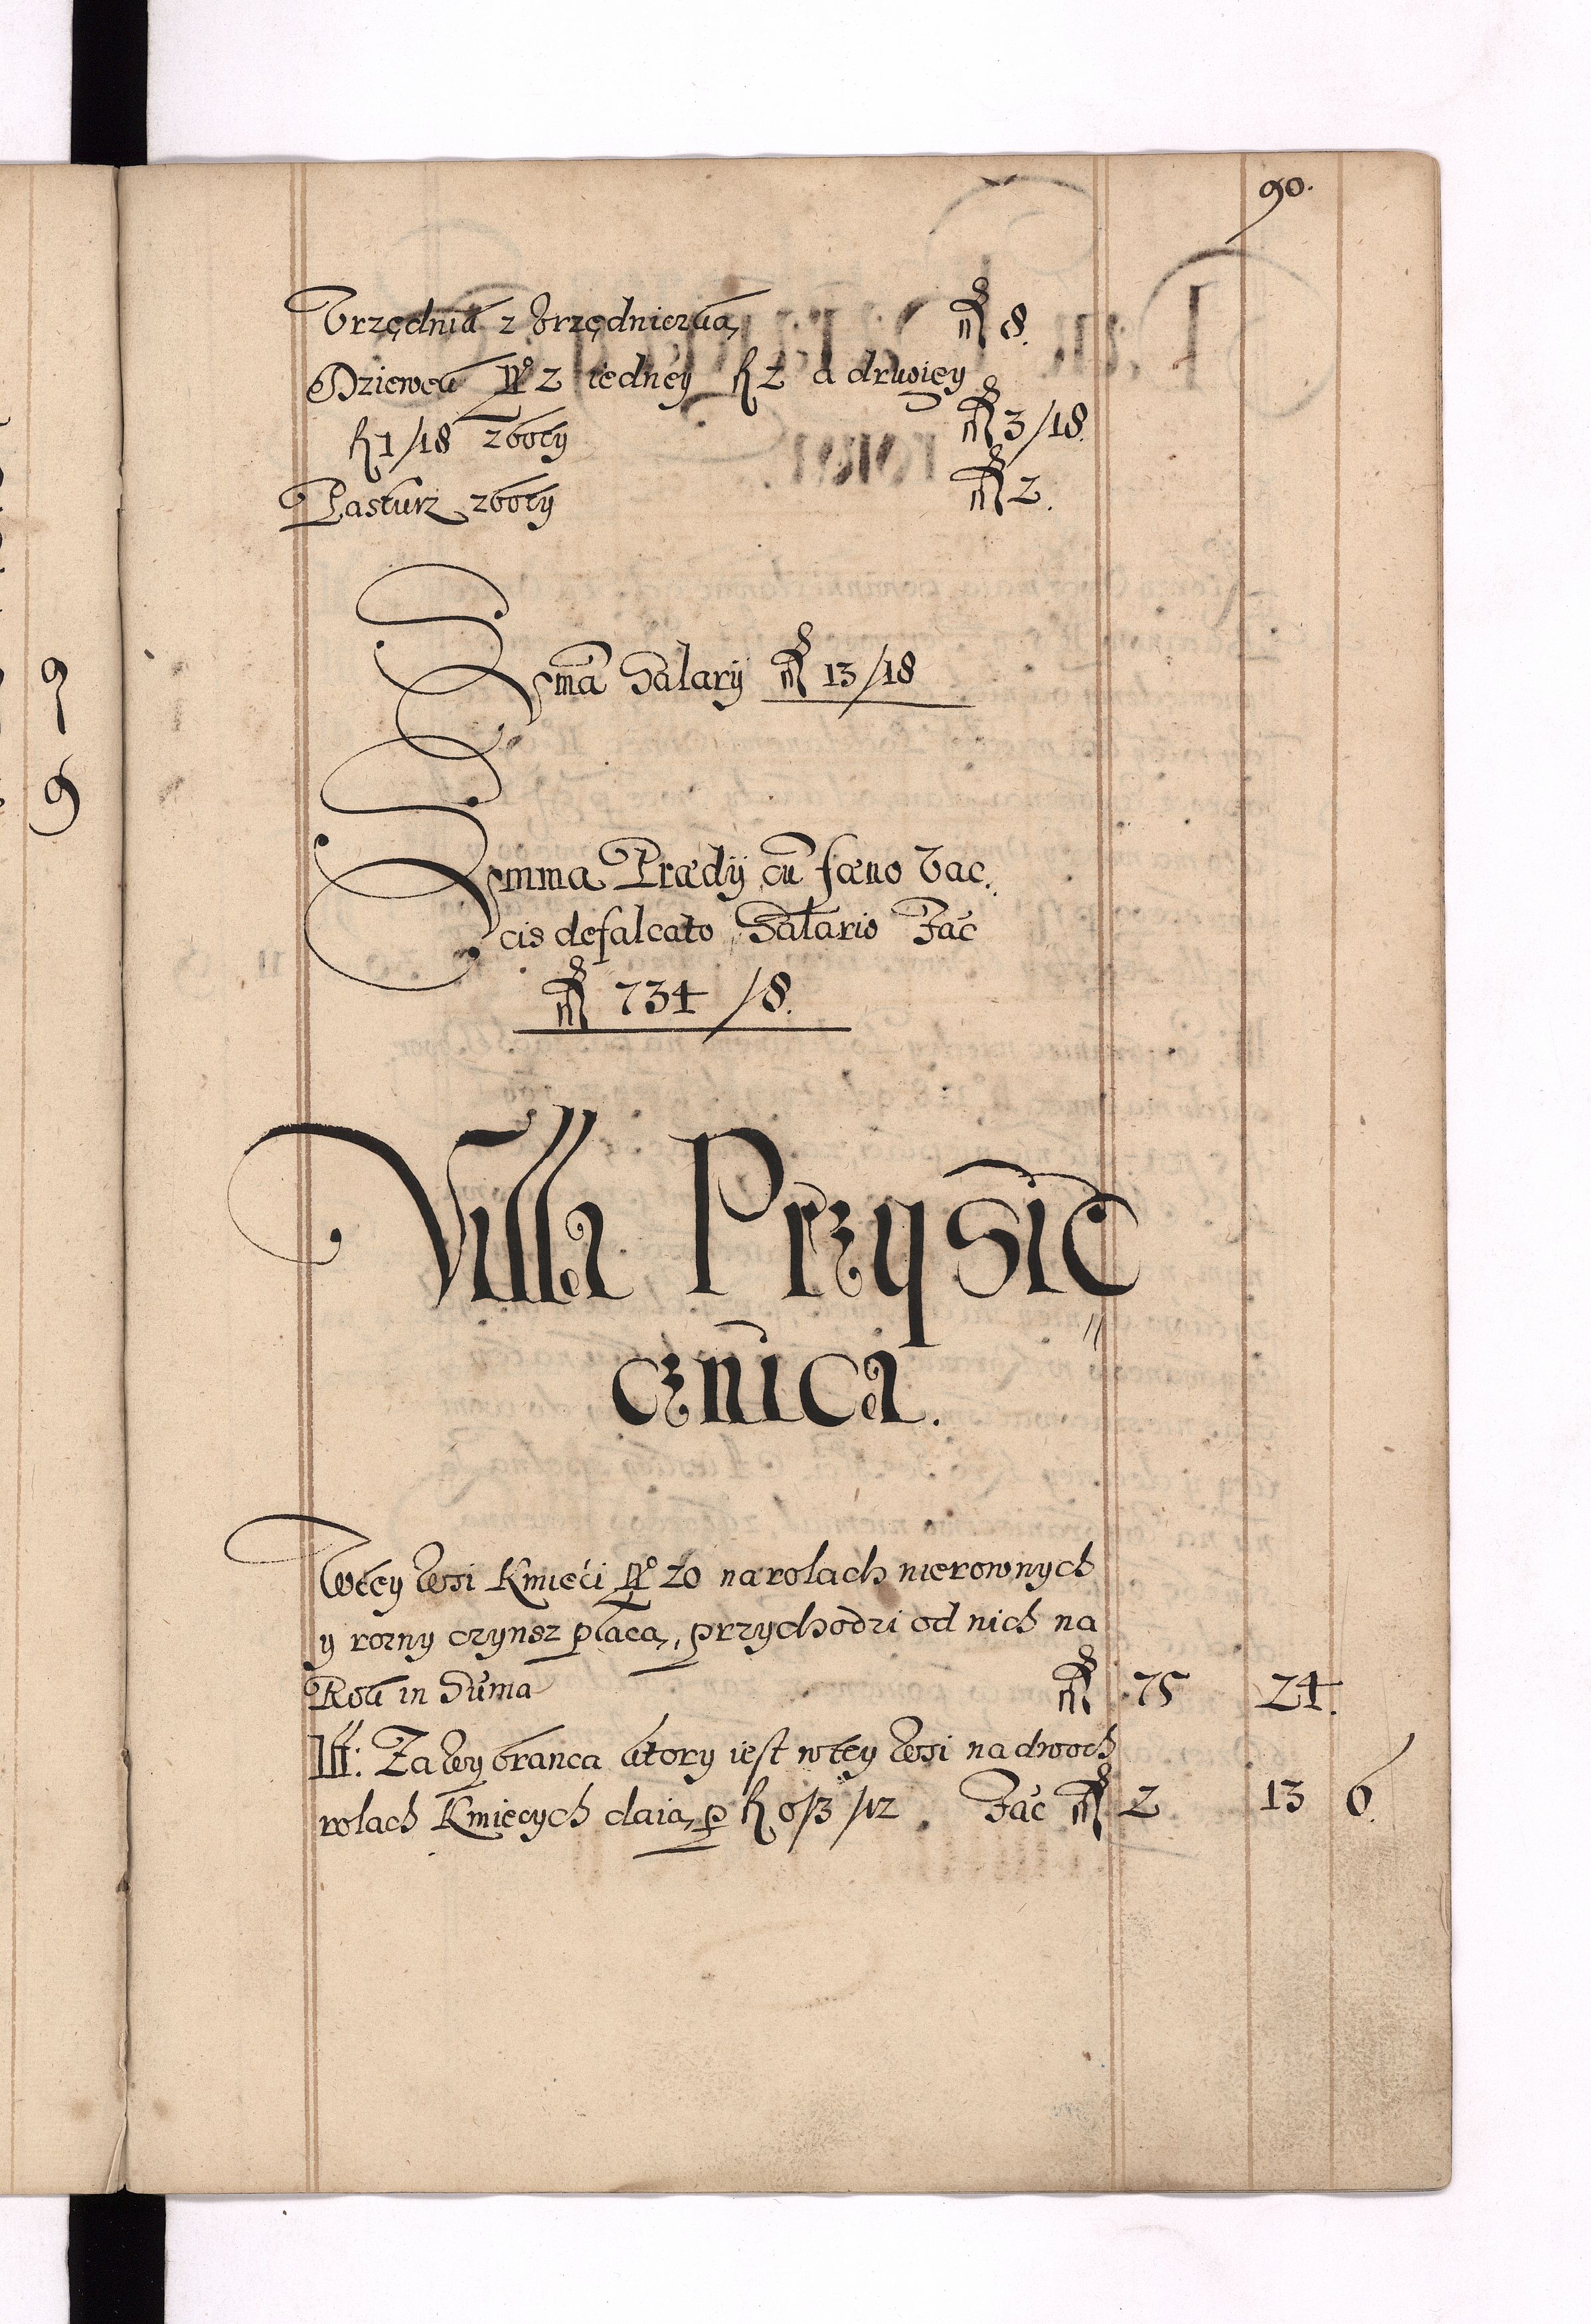 90.
Vrzędnik z Vrzędniczką fl 8.
Dziewek No 2 iedney fl 2 a drugiey
fl 1/18 z boty fl 3/18.
Pasturz z boty fl 2.
Suma Salarij fl 13/18
Summa Prædij cū fœno Vac.
cis defalcato Salario Fac
fl 734 /8.
Villa Przysie
cznica.
W tey Wsi Kmieci No 20 na rolach nierownych
y rozny czynsz płacą, przychodzi od nich na
Rok in Suma fl 75 24.
Itt: Za Wybranca ktory iest w tey Wsi na dwoch
rolach Kmiecych daią p fl 0/3/12. Fac fl 2 13 6.
9
9